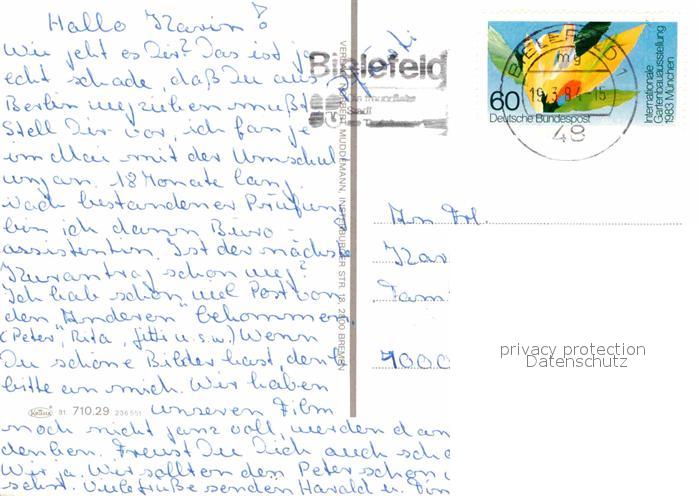 Hallo Karin!
Wie jeht es Dir? Das ist ja
echt schade, daß Du aus
Berlin wegziehen mußt
Stell Dir vor, ich fange
im Mai mit der Umschul-
ung an. 18 Monate lang.
Nach bestandener Prüfung
bin ich dann Büro-
assistentin. Ist der nächste
Kurantrag schon weg?
Ich hab schon viel Post von
den "Anderen" bekommen.
(Peter, Rita, Jitti u.s.w.) Wenn
Du schöne Bilder hast, denk
bitte an mich. Wir haben
unseren Film
noch nicht ganz voll, werden dan
denken. Freust Du Dich auch scho
Wir ja. Wir sollten den Peter schon
sehst. Viele Grüße senden Harald u.
Krüger 81. 710.29 236 551
VERLAG HUBERT MUDDEMANN, INSTERBURGER STR. 18, 2800 BREMEN
Bielefeld
Die freundliche
Stadt
am Teutoburger
BIELEFELD 1
mg
19.3.84-15
48
60
Deutsche Bundespost
Internationale
Gartenbauausstellung
1983 München
An Frl.
Kar
Fam
1000
privacy protection
Datenschutz